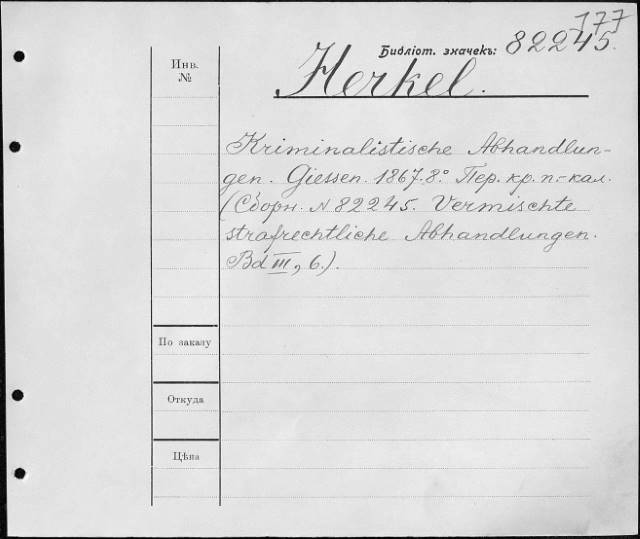 177
Библіот. значекъ: 82245.
Инв.
№
Herkel.
Kriminalistische Abhandlun-
gen. Giessen. 1867. 8.° Пер. кр. п.-кал.
(Сборн. № 82245. Vermischte
strafrechtliche Abhandlungen.
Bd III, 6.).
По заказу
Откуда
Цѣна